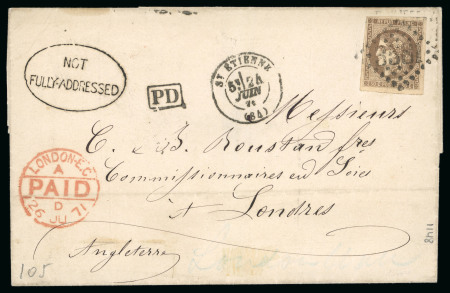 NOT
FULLY-ADDRESSED
PD
ST ETIENNE
5E 24
JUIN
71
(84)
REPUB. FRANC.
Messieurs
C. & B. Roustan fres
Commissionnaires en Soies
à Londres
Angleterre
LONDON-E.C
A
PAID
D
26 JU 71
105
1148